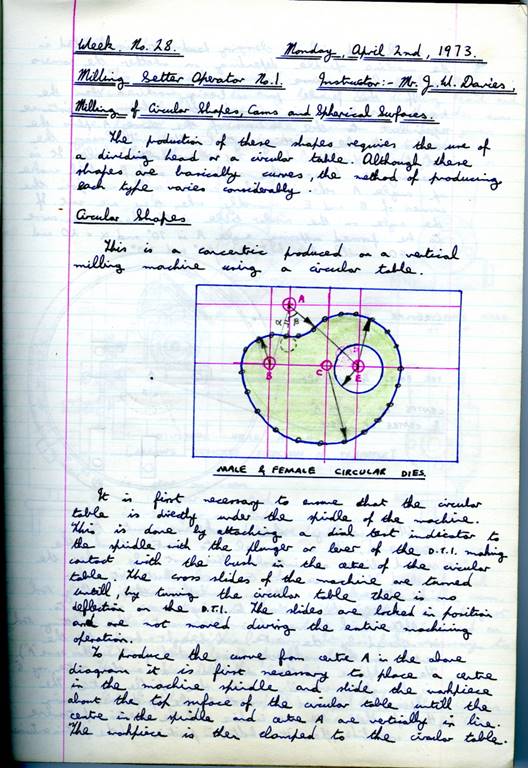 Week. No. 28. Monday, April 2nd, 1973.
Milling Setter Operator No.1. Instructor:- Mr. J. W. Davies,
Milling of Circular Shapes, Cams and Spherical Surfaces.
The production of these shapes requires the use of
a dividing head or a circular table. Although these
shapes are basically curves, the method of producing
each type varies considerably.
Circular Shapes
This is a concentric produced on a vertical
milling machine using a circular table.
A
α
B
C
E
MALE & FEMALE CIRCULAR DIES.
It is first necessary to ensure that the circular
table is directly under the spindle of the machine.
This is done by attaching a dial test indicator to
the spindle with the plunger or lever of the D.T.I. making
contact with the bush in the cetre of the circular
table. The cross slides of the machine are turned
untill, by turning the circular table there is no
deflection on the D.T.I. The slides are locked in position
and are not moved during the entire machining
operation.
To produce the curve from cetre A in the above
diagram it is first necessary to place a centre
in the machine spindle and slide the workpiece
about the top surface of the circular table untill the
centre in the spindle and cetre A are vertically in line.
The workpiece is then clamped to the circular table.